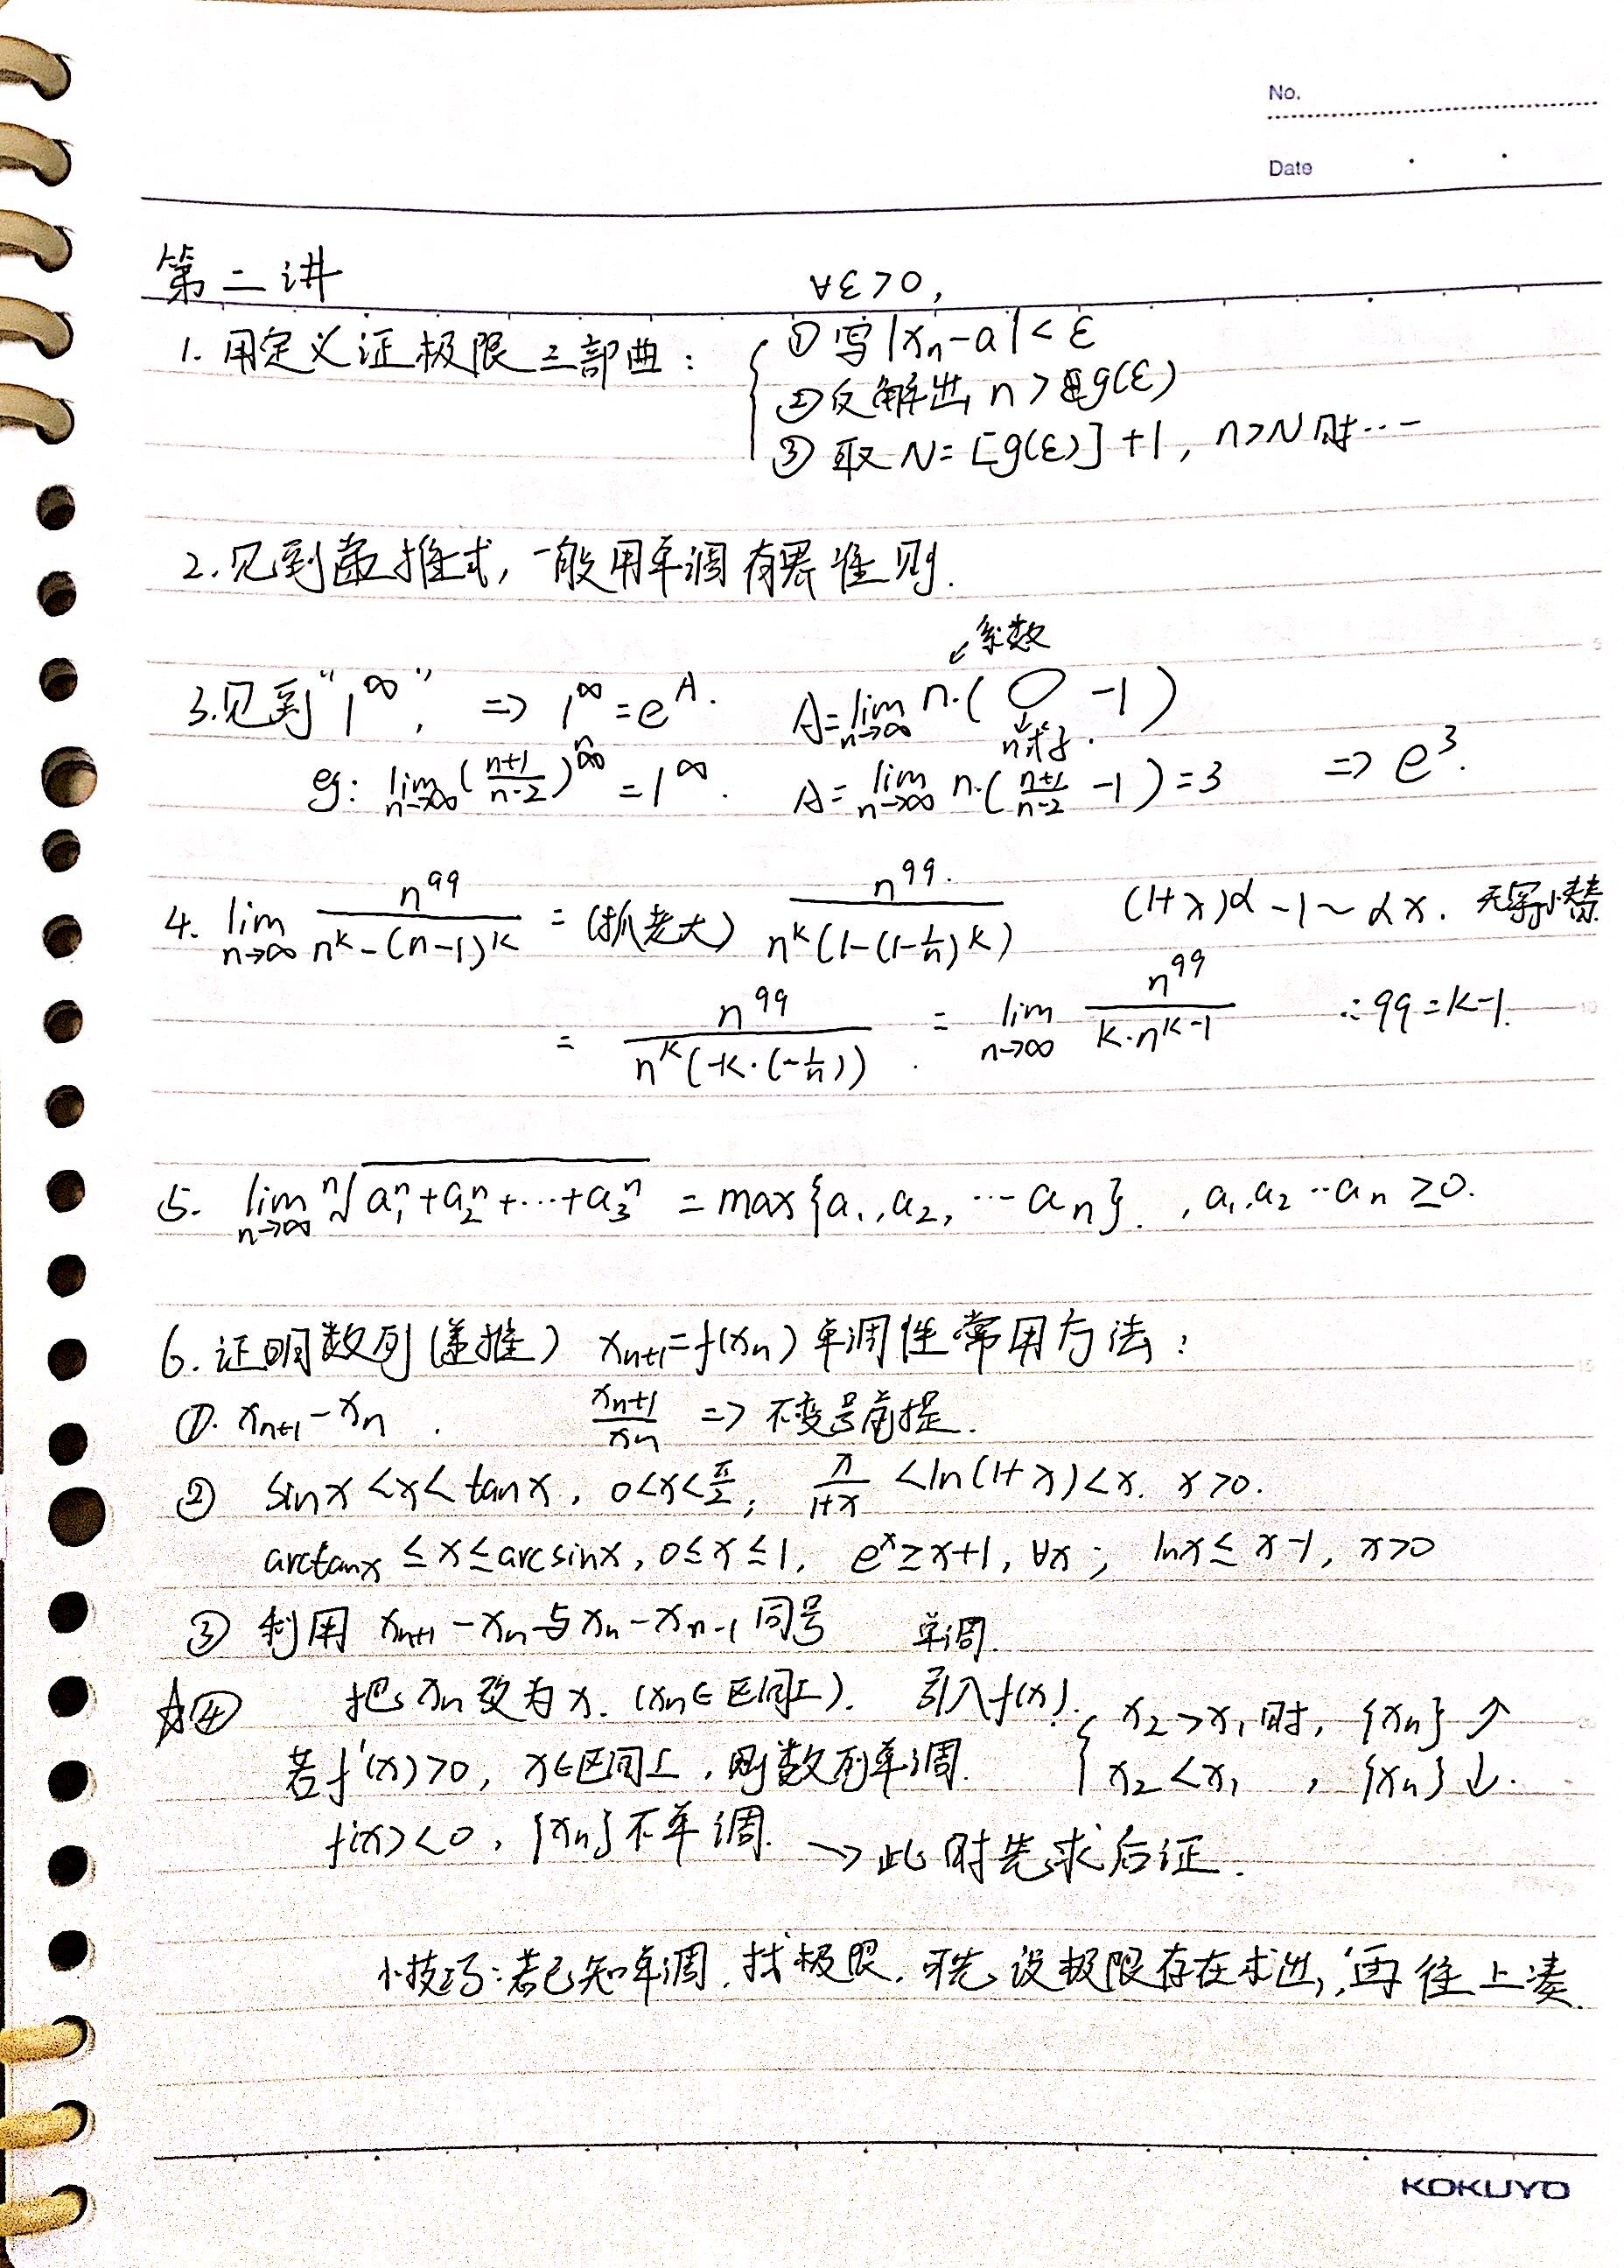 No.
Date
第二讲
∀ε>0,
1. 用定义证极限三部曲:
① 写 |xₙ-a|<ε
② 反解出 n>g(ε)
③ 取 N=[g(ε)]+1, n>N时…
2. 见到递推式, 一般用单调有界准则.
系数
3. 见到"1^∞", ⇒ 1^∞=e^A. A=lim_{n→∞} n·(○-1)
n式子.
eg: lim_{n→∞} ((n+1)/(n-2))^n =1^∞. A=lim_{n→∞} n·((n+1)/(n-2) -1)=3 ⇒ e³.
4. lim_{n→∞} n^99/(n^k-(n-1)^k) = (抓老大) n^99/(n^k(1-(1-1/n)^k)) (1+x)^α-1~αx. 无穷小替
= n^99/(n^k(-k·(-1/n))) = lim_{n→∞} n^99/(k·n^{k-1}) ∴99=k-1.
5. lim_{n→∞} ⁿ√(a₁ⁿ+a₂ⁿ+…+a₃ⁿ) = max{a₁,a₂,…aₙ}. , a₁,a₂…aₙ ≥0.
6. 证明数列(递推) xₙ₊₁=f(xₙ) 单调性常用方法:
①. xₙ₊₁-xₙ. xₙ₊₁/xₙ ⇒ 不变号前提.
② sinx<x<tanx, 0<x<π/2; x/(1+x)<ln(1+x)<x. x>0.
arctanx ≤x≤arcsinx, 0≤x≤1, e^x≥x+1, ∀x; lnx≤x-1, x>0
③ 利用 xₙ₊₁-xₙ与xₙ-xₙ₋₁同号 单调.
☆④ 把xₙ改为x. (xₙ∈区间I). 引入f(x).
若f'(x)>0, x∈区间I, 则数列单调. { x₂>x₁时, {xₙ}↑
x₂<x₁ , {xₙ}↓.
f'(x)<0, {xₙ}不单调. → 此时先求后证.
小技巧: 若已知单调, 找极限, 可先设极限存在求出, 再往上凑.
KOKUYO